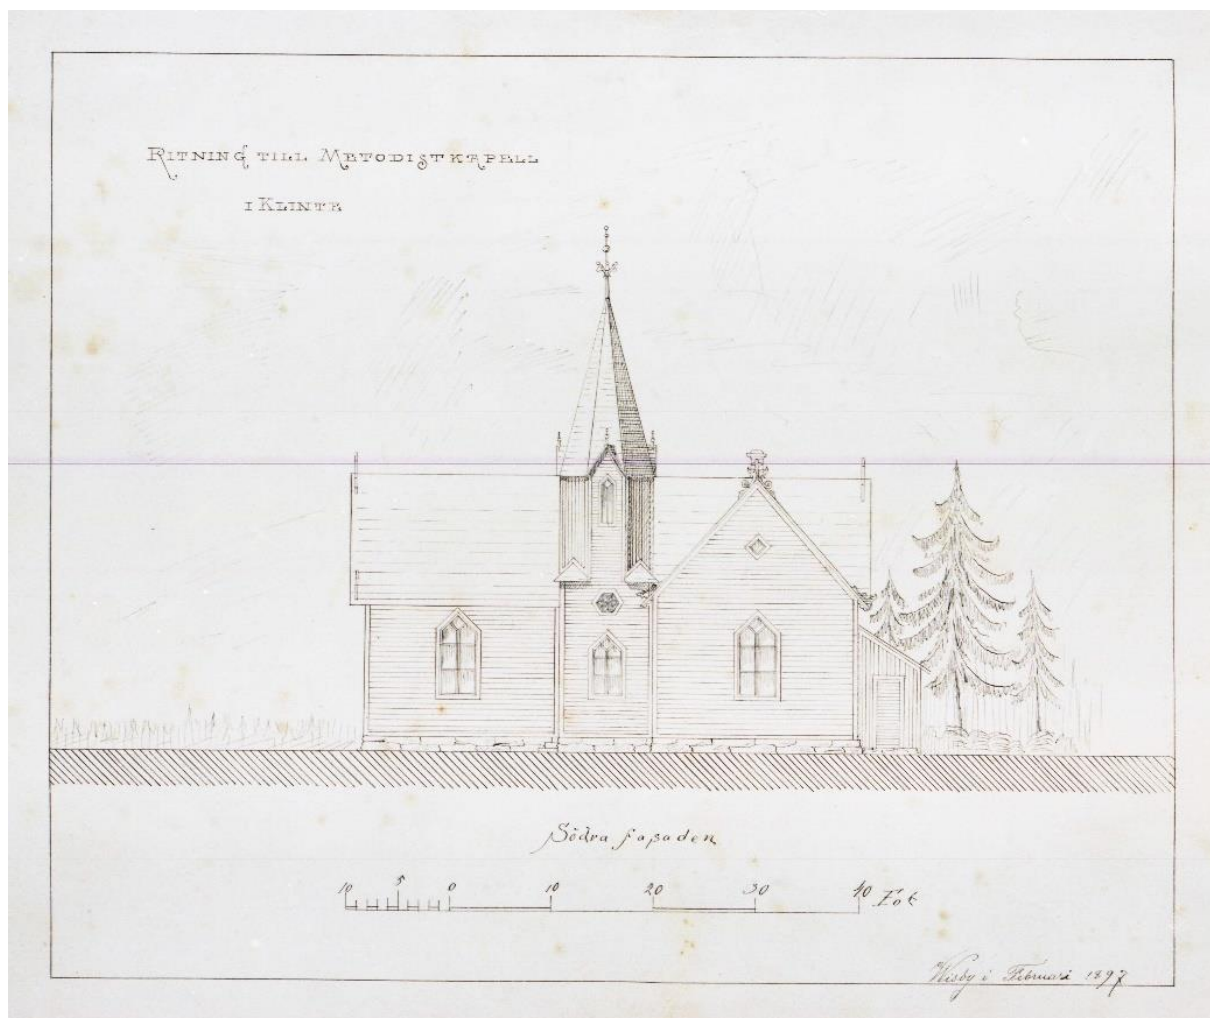 Ritning till Metodistkapell
i Klinte
Södra fasaden
10 5 0 10 20 30 40 Fot
Wisby i Februari 1897